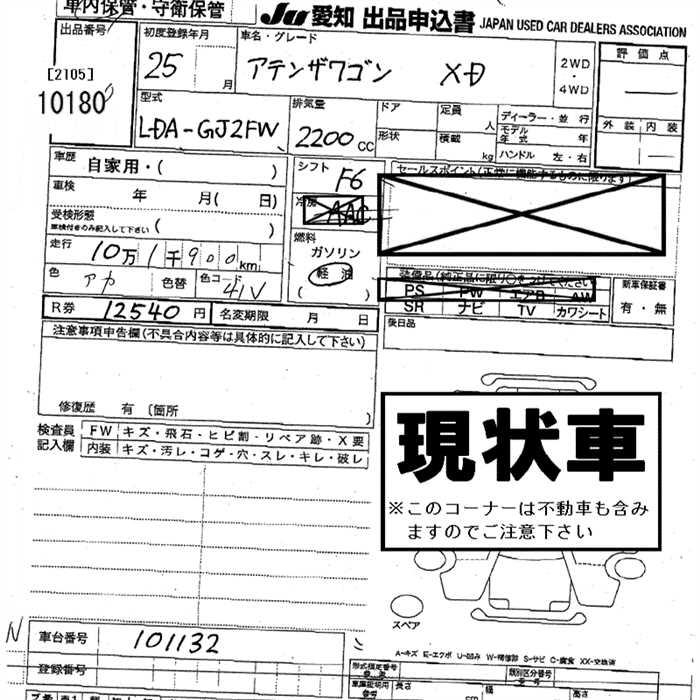 車内保管・守衛保管
JU 愛知 出品申込書 JAPAN USED CAR DEALERS ASSOCIATION
出品番号
[2105]
10180
初度登録年月
25 月
車名・グレード
アテンザワゴン XD
2WD
・
4WD
評価点
外装 内装
型式
LDA-GJ2FW
排気量
2200 CC
ドア
形状
定員
人
積載
kg
ディーラー・並行
モデル
年式 年
ハンドル 左・右
車歴 自家用・( )
車検 年 月( 日)
受検形態
車検付きのみ記入して下さい ( )
走行 10万1千900km
色 アカ 色替 色コード 41V
シフト
F6
冷房
AAC
燃料
ガソリン
軽油
( )
セールスポイント(正常に機能するものに限ります)
装備品(純正品に限り○をつけてください)
PS PW エアB AW
SR ナビ TV カワシート
新車保証書
有・無
後日品
R券 12540 円 名変期限 月 日
注意事項申告欄(不具合内容等は具体的に記入して下さい)
修復歴 有 〔箇所 〕
検査員
記入欄
FW キズ・飛石・ヒビ割・リペア跡・X要
内装 キズ・汚レ・コゲ・穴・スレ・キレ・破レ
現状車
※このコーナーは不動車も含み
ますのでご注意下さい
スペア
A-キズ E-エクボ U-凹み W-補修跡 S-サビ C-腐食 XX-交換済
N
車台番号 101132
登録番号
形式指定番号
類別区分番号
長さ
cm
幅
高さ